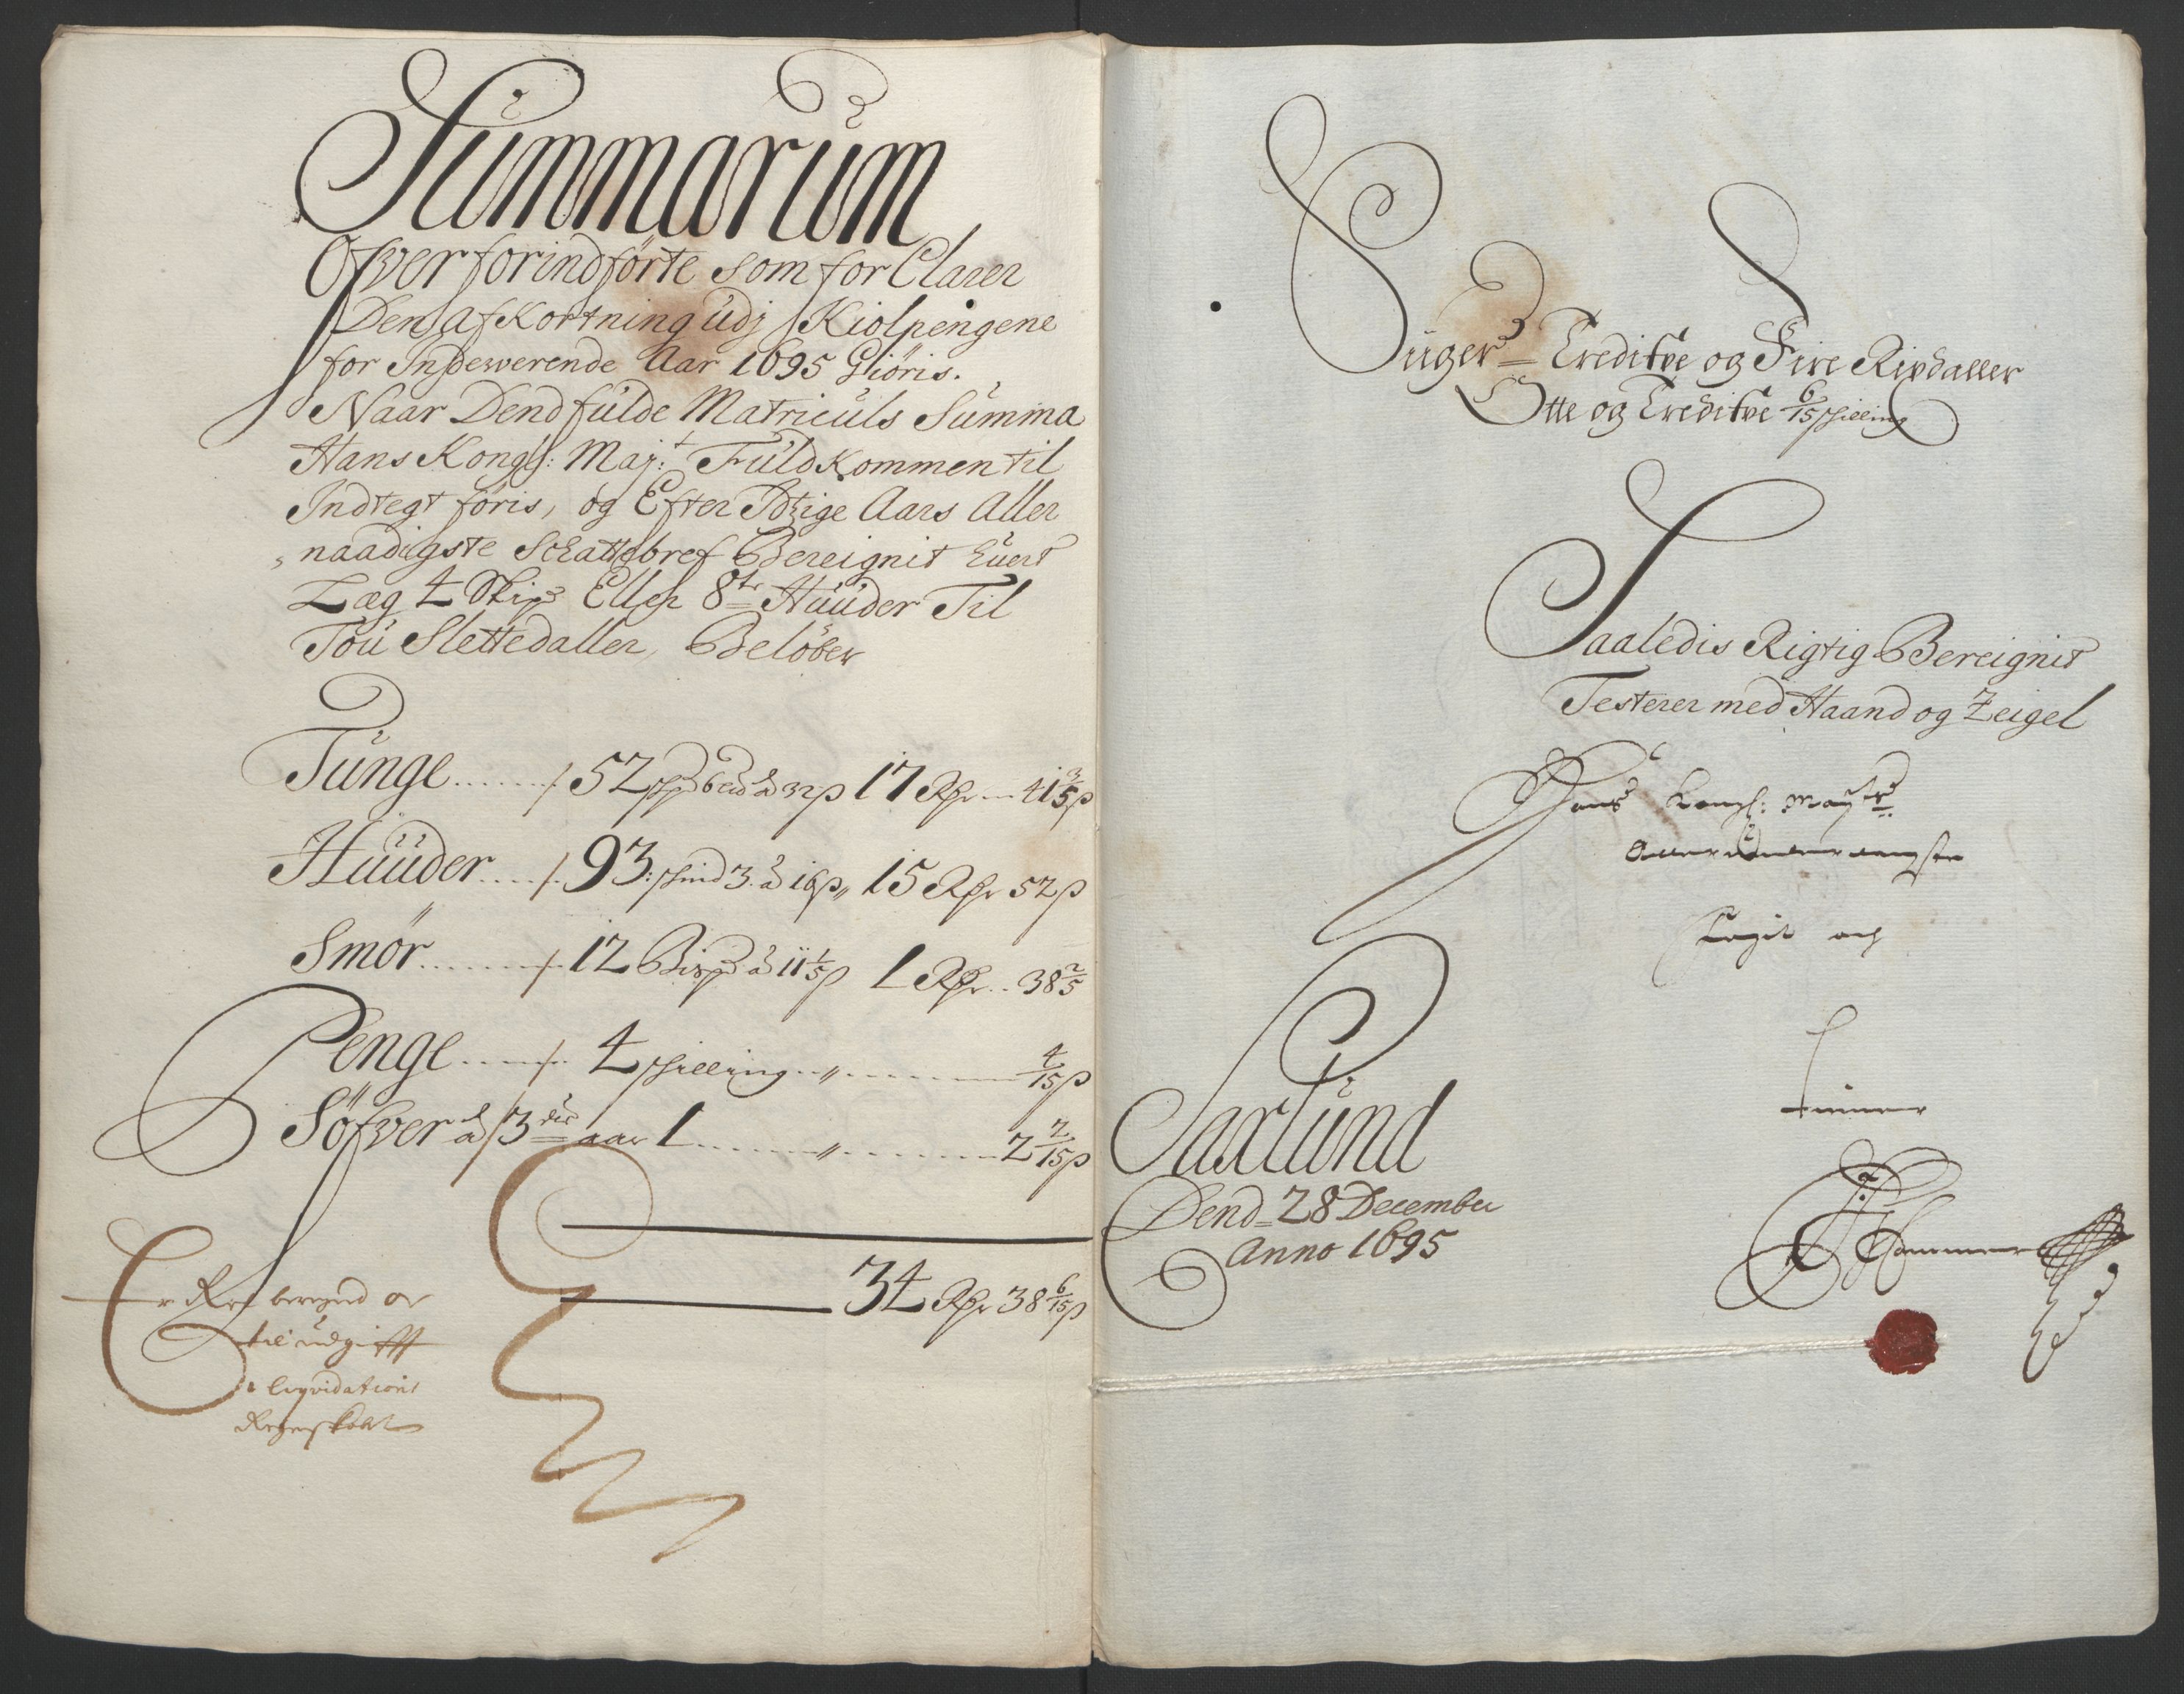 Summarum
Ofver forindförte som for Clarer
Den Afkortning udj Kiolpengene
for Indewerende Aar 1695 Giöris.
Naar Dend fulde Matriculs Summa
Hans Kongl: Maj:t Fuldkommen til
Indtegt föris, og Efter Itzige Aars Aller
naadigste Schattebref Bereignit huert
Læg 4 Skip Eller 8te Huuder Til
Tou Slettedaller, Belöber
Tunge ...... 52 à 32 β 17 Rdr ... 41 3/5 β
Huuder .... 93: schind 3 à 16 β 15 Rdr 52 β
Smör ....... 12 Bisp à 11 1/5 β 1 Rdr .. 38 2/5
Penge ..... 4 schilling ........ 4/15 β
Söfver à 3die aar 1 ............ 2 2/15 β
34 Rdr 38 6/15 β
Er Ret beregned og
til udgifft
i liqvidations
Regenskabet
Siiger Treditve og Fire Rixdaller
Otte og Treditve 6/15 schilling
Saaledis Rigtig Bereignit
Testerer med Haand og Zeigel
Hans Kongl: Mayts
Allerunderdanigste
Pligt og
tiener
Saxlund
Dend 28 December
Anno 1695